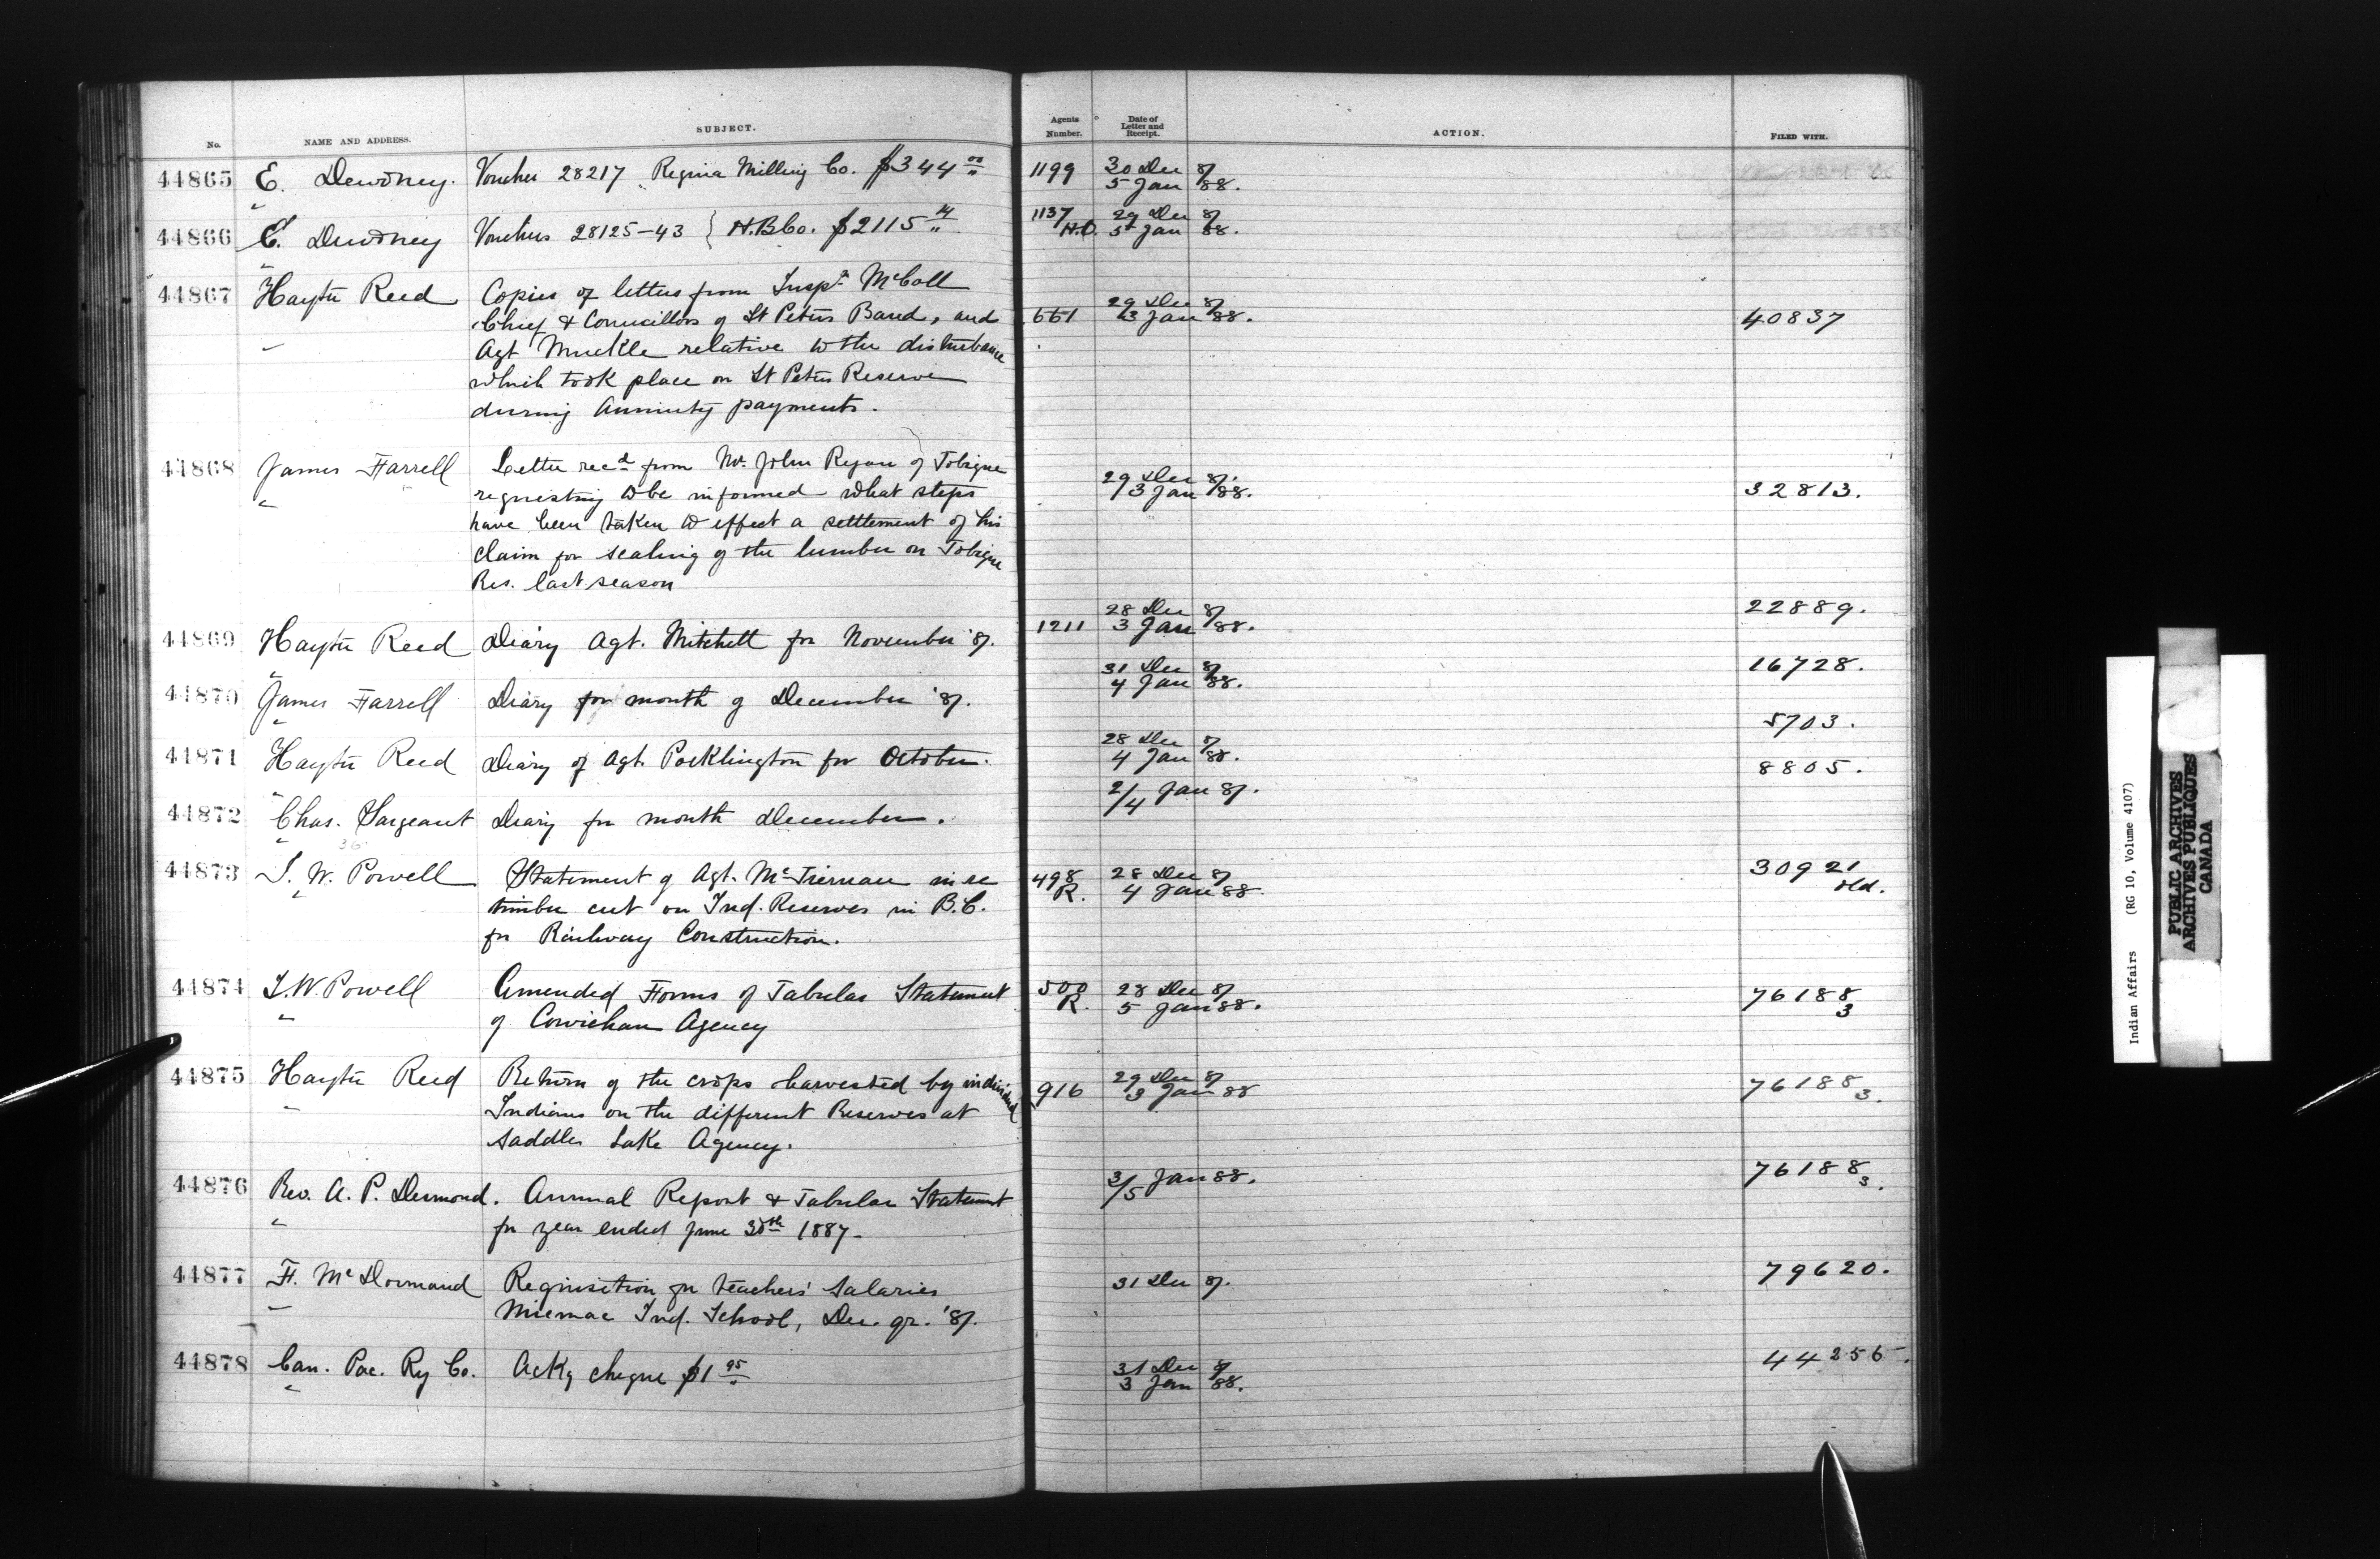 No. NAME AND ADDRESS. SUBJECT. Agents Number. Date of Letter and Receipt. ACTION. FILED WITH.
44865 E. Dewdney. Voucher 28217 Regina Milling Co. $344 00 1199 30 Dec 87
5 Jan 88.
44866 E. Dewdney Vouchers 28125-43 } H.B.Co. $2115 14 1137 29 Dec 87
H.O. 5 Jan 88.
44867 Hayter Reed Copies of letters from Inspr McColl
Chief & Councillors of St Peters Band, and 661 29 Dec 87 40837
Agt Muckle relative to the disturbance 3 Jan 88.
which took place on St Peters Reserve
during Annuity payments.
44868 James Farrell Letter recd from Mr. John Ryan of Tobique
requesting to be informed what steps 29 Dec 87. 32813.
have been taken to effect a settlement of his 3 Jan 88.
claim for scaling of the lumber on Tobique
Res. last season
44869 Hayter Reed Diary Agt. Mitchell for November '87. 1211 28 Dec 87 22889.
3 Jan 88.
44870 James Farrell Diary for month of December '87. 31 Dec 87 16728.
4 Jan 88.
44871 Hayter Reed Diary of Agt. Pocklington for October. 28 Dec 87 5703.
4 Jan 88.
44872 Chas. Sargeant Diary for month December. 2/4 Jan 87. 8805.
44873 I. W. Powell Statement of Agt. McTiernan in re 498 28 Dec 87 30921
timber cut on Ind. Reserves in B.C. R. 4 Jan 88. old.
for Railway Construction.
44874 I. W. Powell Amended Forms of Tabular Statement 500 28 Dec 87 76188
of Cowichan Agency R. 5 Jan 88. 3
44875 Hayter Reed Return of the crops harvested by individual 916 29 Dec 87 76188
Indians on the different Reserves at 3 Jan 88 3.
Saddle Lake Agency.
44876 Rev. A. P. Desmond. Annual Report & Tabular Statement 3/5 Jan 88. 76188
for year ended June 30th 1887. 3.
44877 F. McDormand Requisition for teachers' salaries 31 Dec 87. 79620.
Micmac Ind. School, Dec. qr. '87.
44878 Can. Pac. Ry Co. Ackg cheque $1 95 31 Dec 87 44256.
3 Jan 88.
Indian Affairs (RG 10, Volume 4107)
PUBLIC ARCHIVES
ARCHIVES PUBLIQUES
CANADA